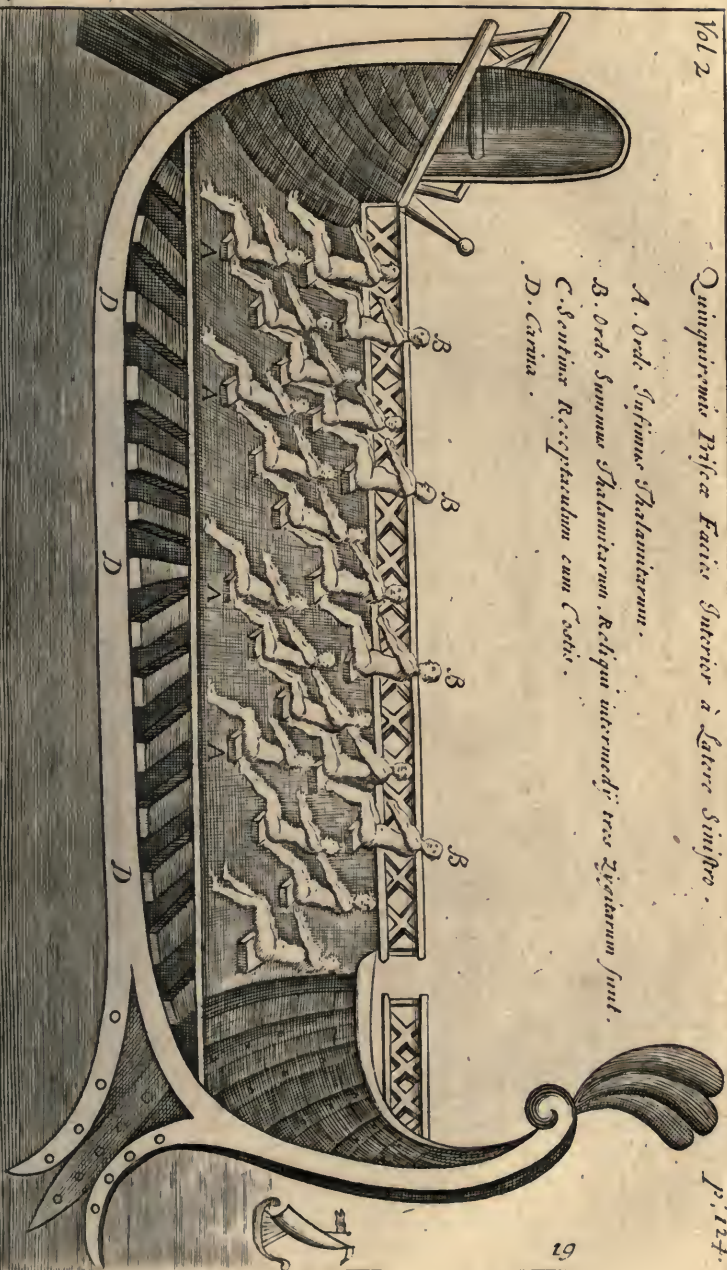 Vol 2
P. 124.
Quinquiremis Priſcæ Facies Interior à Latere Siniſtro.
A. Ordo Infimus Thalamitarum.
B. Ordo Summus Thalamitarum. Reliqui intermedij tres Zygitarum ſunt.
C. Sentinæ Receptaculum cum Costis.
D. Carina.
B
B
B
B
A
A
A
A
D
D
D
19